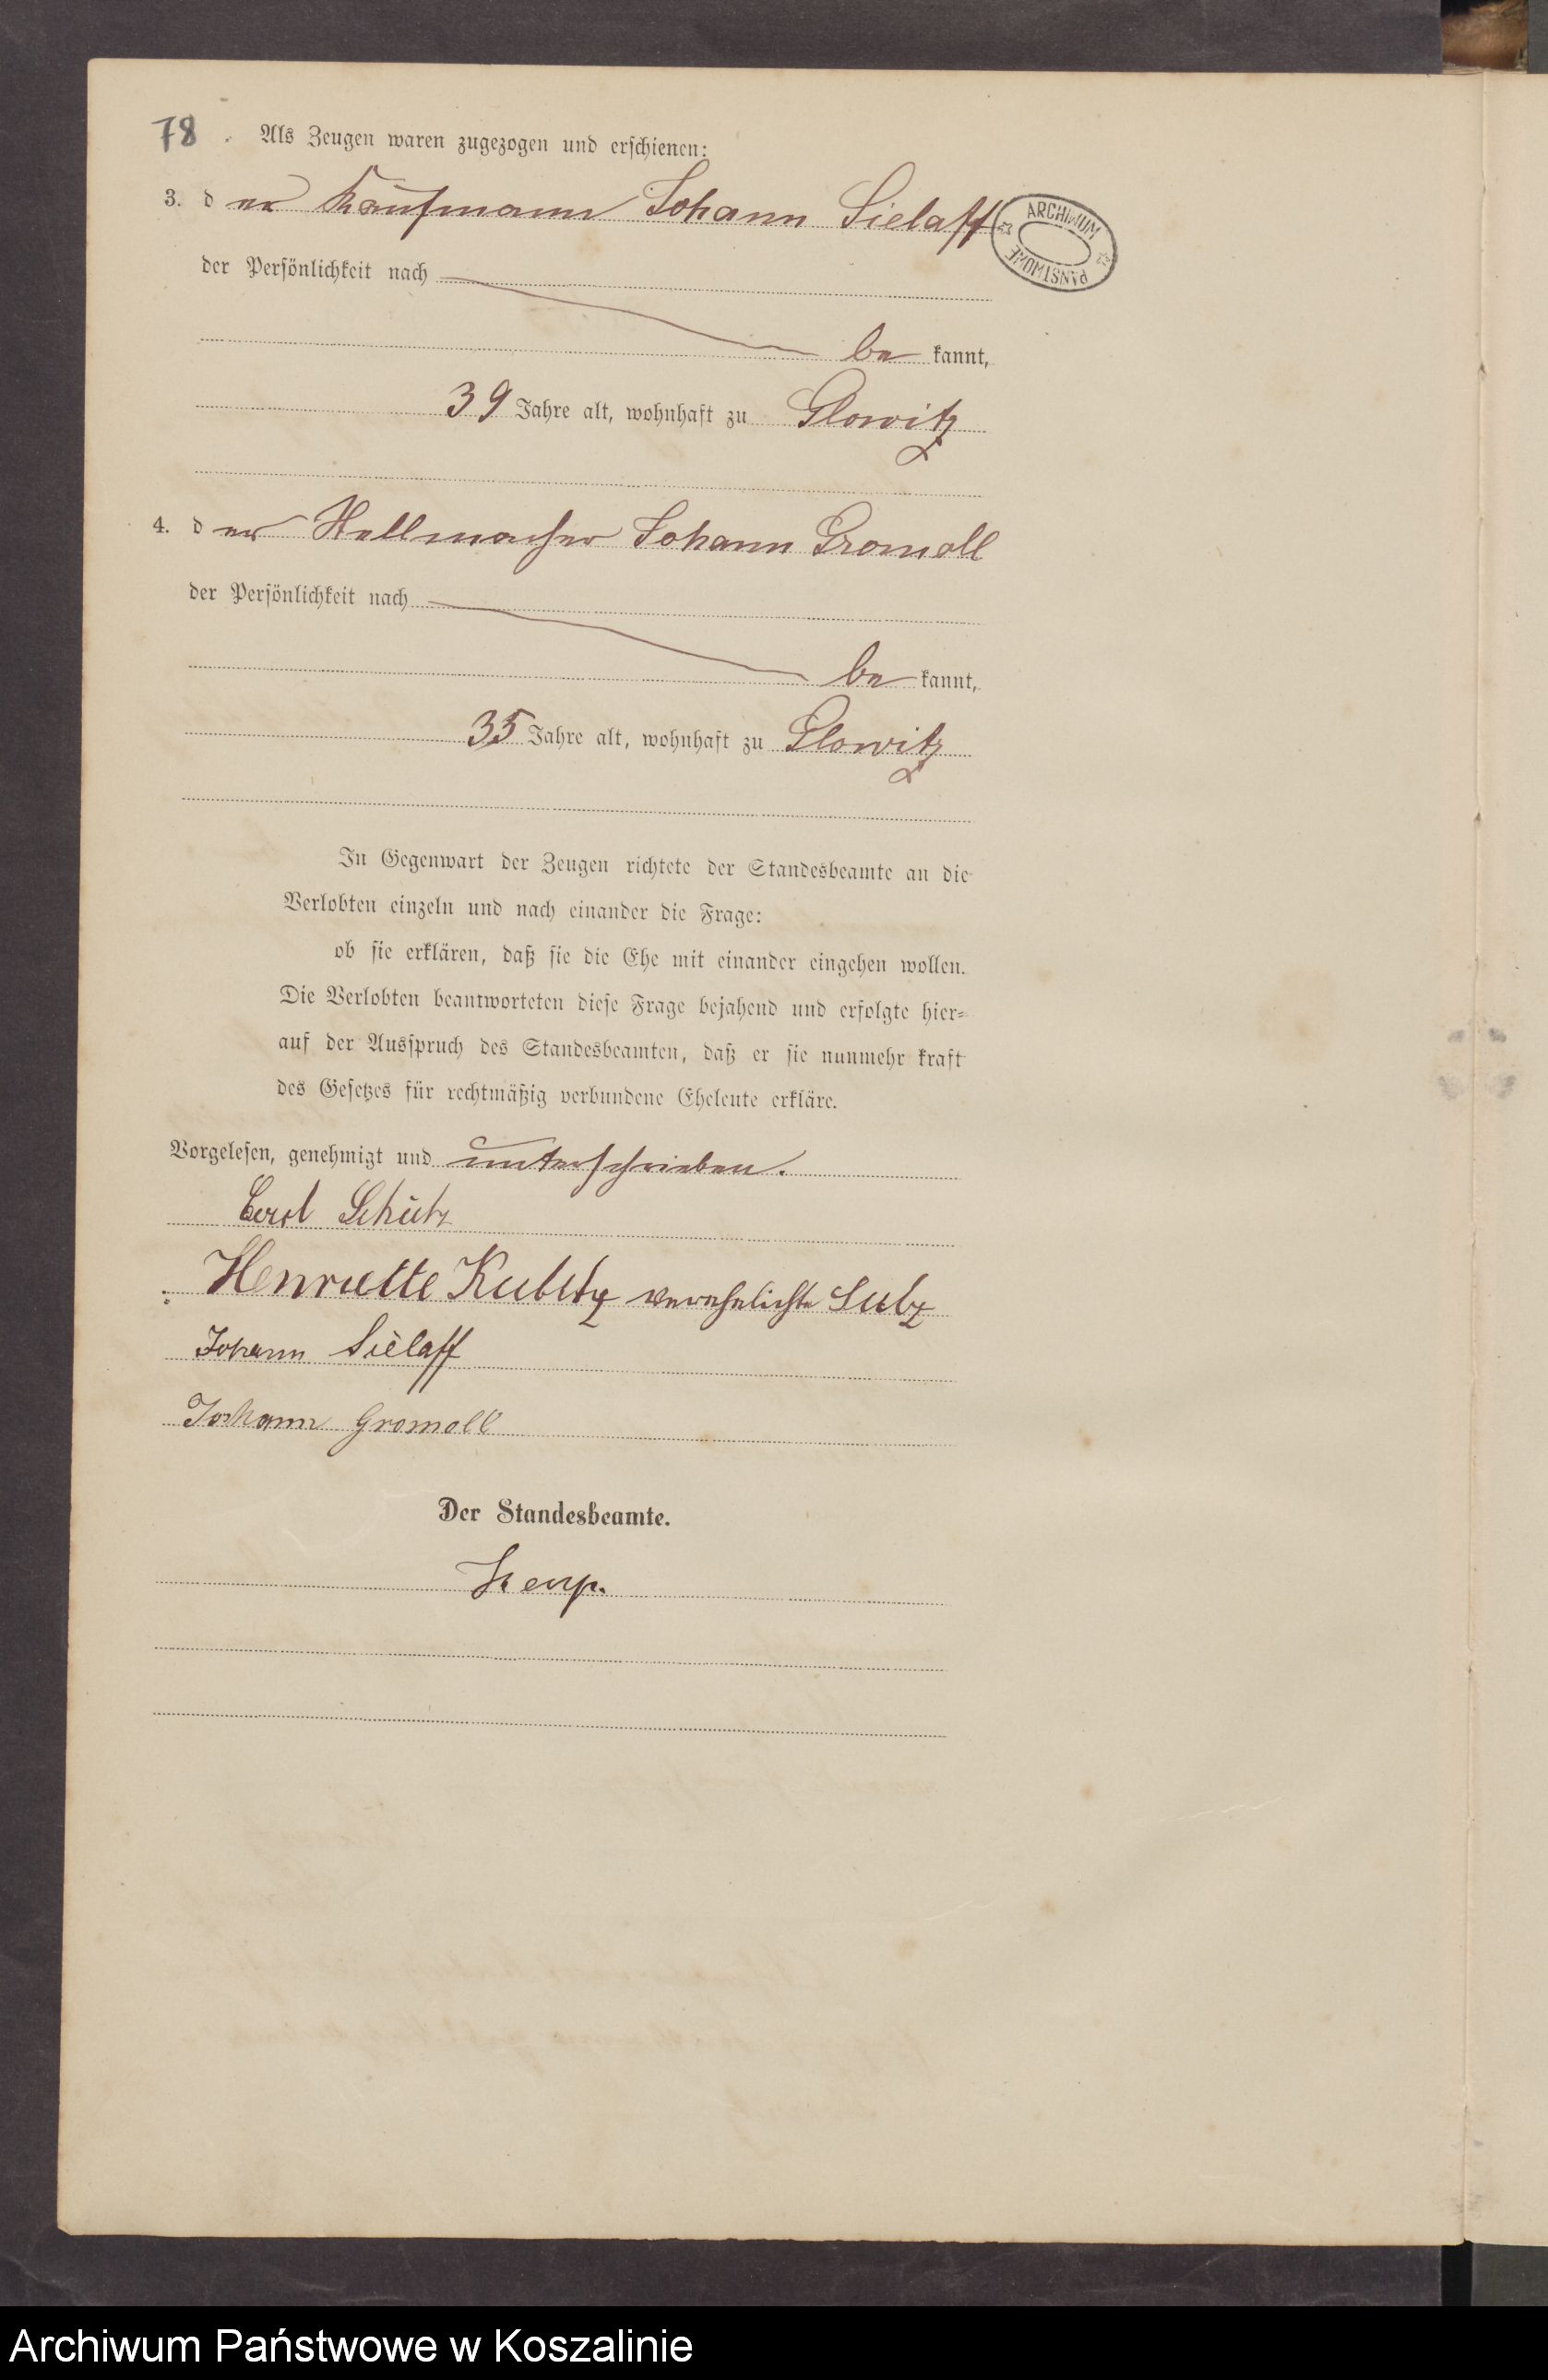 78. Als Zeugen waren zugezogen und erschienen:
3. der Kaufmann Johann Sielaff
ARCHIWUM PAŃSTWOWE
der Persönlichkeit nach
be kannt,
39 Jahre alt, wohnhaft zu Glowitz
4. der Johann Gromoll
der Persönlichkeit nach
be kannt,
35 Jahre alt, wohnhaft zu Glowitz
In Gegenwart der Zeugen richtete der Standesbeamte an die
Verlobten einzeln und nach einander die Frage:
ob sie erklären, daß sie die Ehe mit einander eingehen wollen.
Die Verlobten beantworteten diese Frage bejahend und erfolgte hier=
auf der Ausspruch des Standesbeamten, daß er sie nunmehr kraft
des Gesetzes für rechtmäßig verbundene Eheleute erkläre.
Vorgelesen, genehmigt und unterschrieben.
Henriette verehelichte
Johann Sielaff
Johann Gromoll
Der Standesbeamte.
Archiwum Państwowe w Koszalinie